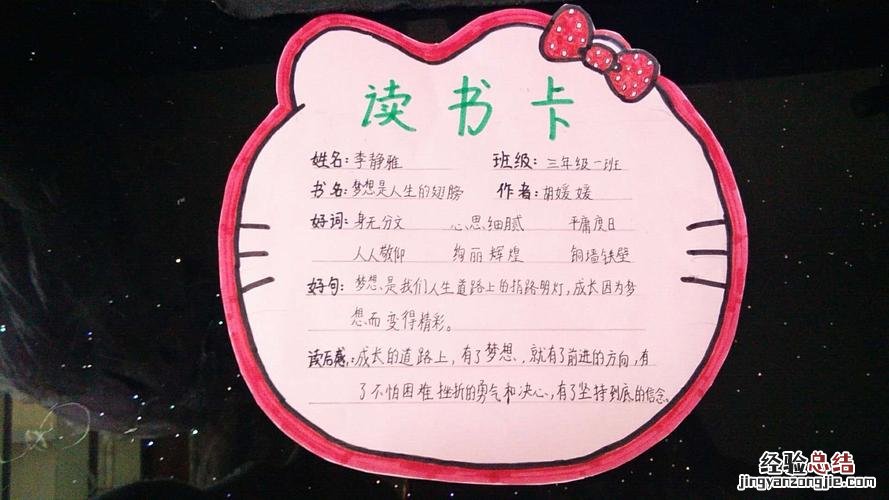 读书卡
姓名：李静雅 班级：三年级一班
书名：梦想是人生的翅膀 作者：胡媛媛
好词：身无分文 心思细腻 平庸度日
人人敬仰 绚丽辉煌 铜墙铁壁
好句：梦想是我们人生道路上的指路明灯，成长因为梦
想而变得精彩。
读后感：成长的道路上，有了梦想，就有了前进的方向，有
了不怕困难挫折的勇气和决心，有了坚持到底的信念。
经验总结
jingyanzongjie.com